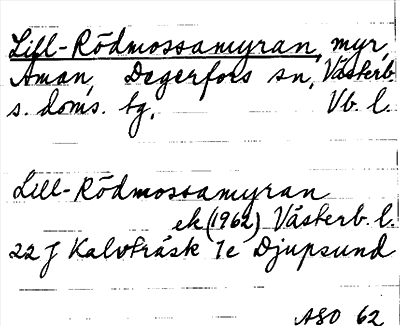 Lill-Rödmossamyran, myr,
Åman, Degerfors sn, Västerb.
s. doms. tg, Vb. l.
Lill-Rödmossamyran
ek (1962) Västerb. l.
22 J Kalvträsk 7e Djupsund
ASO 62